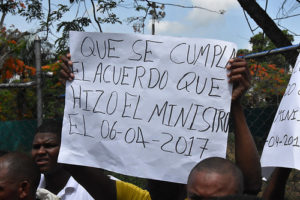 QUE SE CUMPLA
EL ACUERDO QUE
HIZO EL MINISTRO
EL 06-04-2017
-04-2017